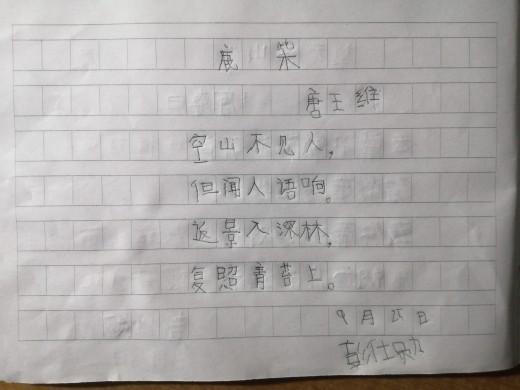 鹿 柴
唐王维
空山不见人，
但闻人语响。
返景入深林，
复照青苔上。
9月25日